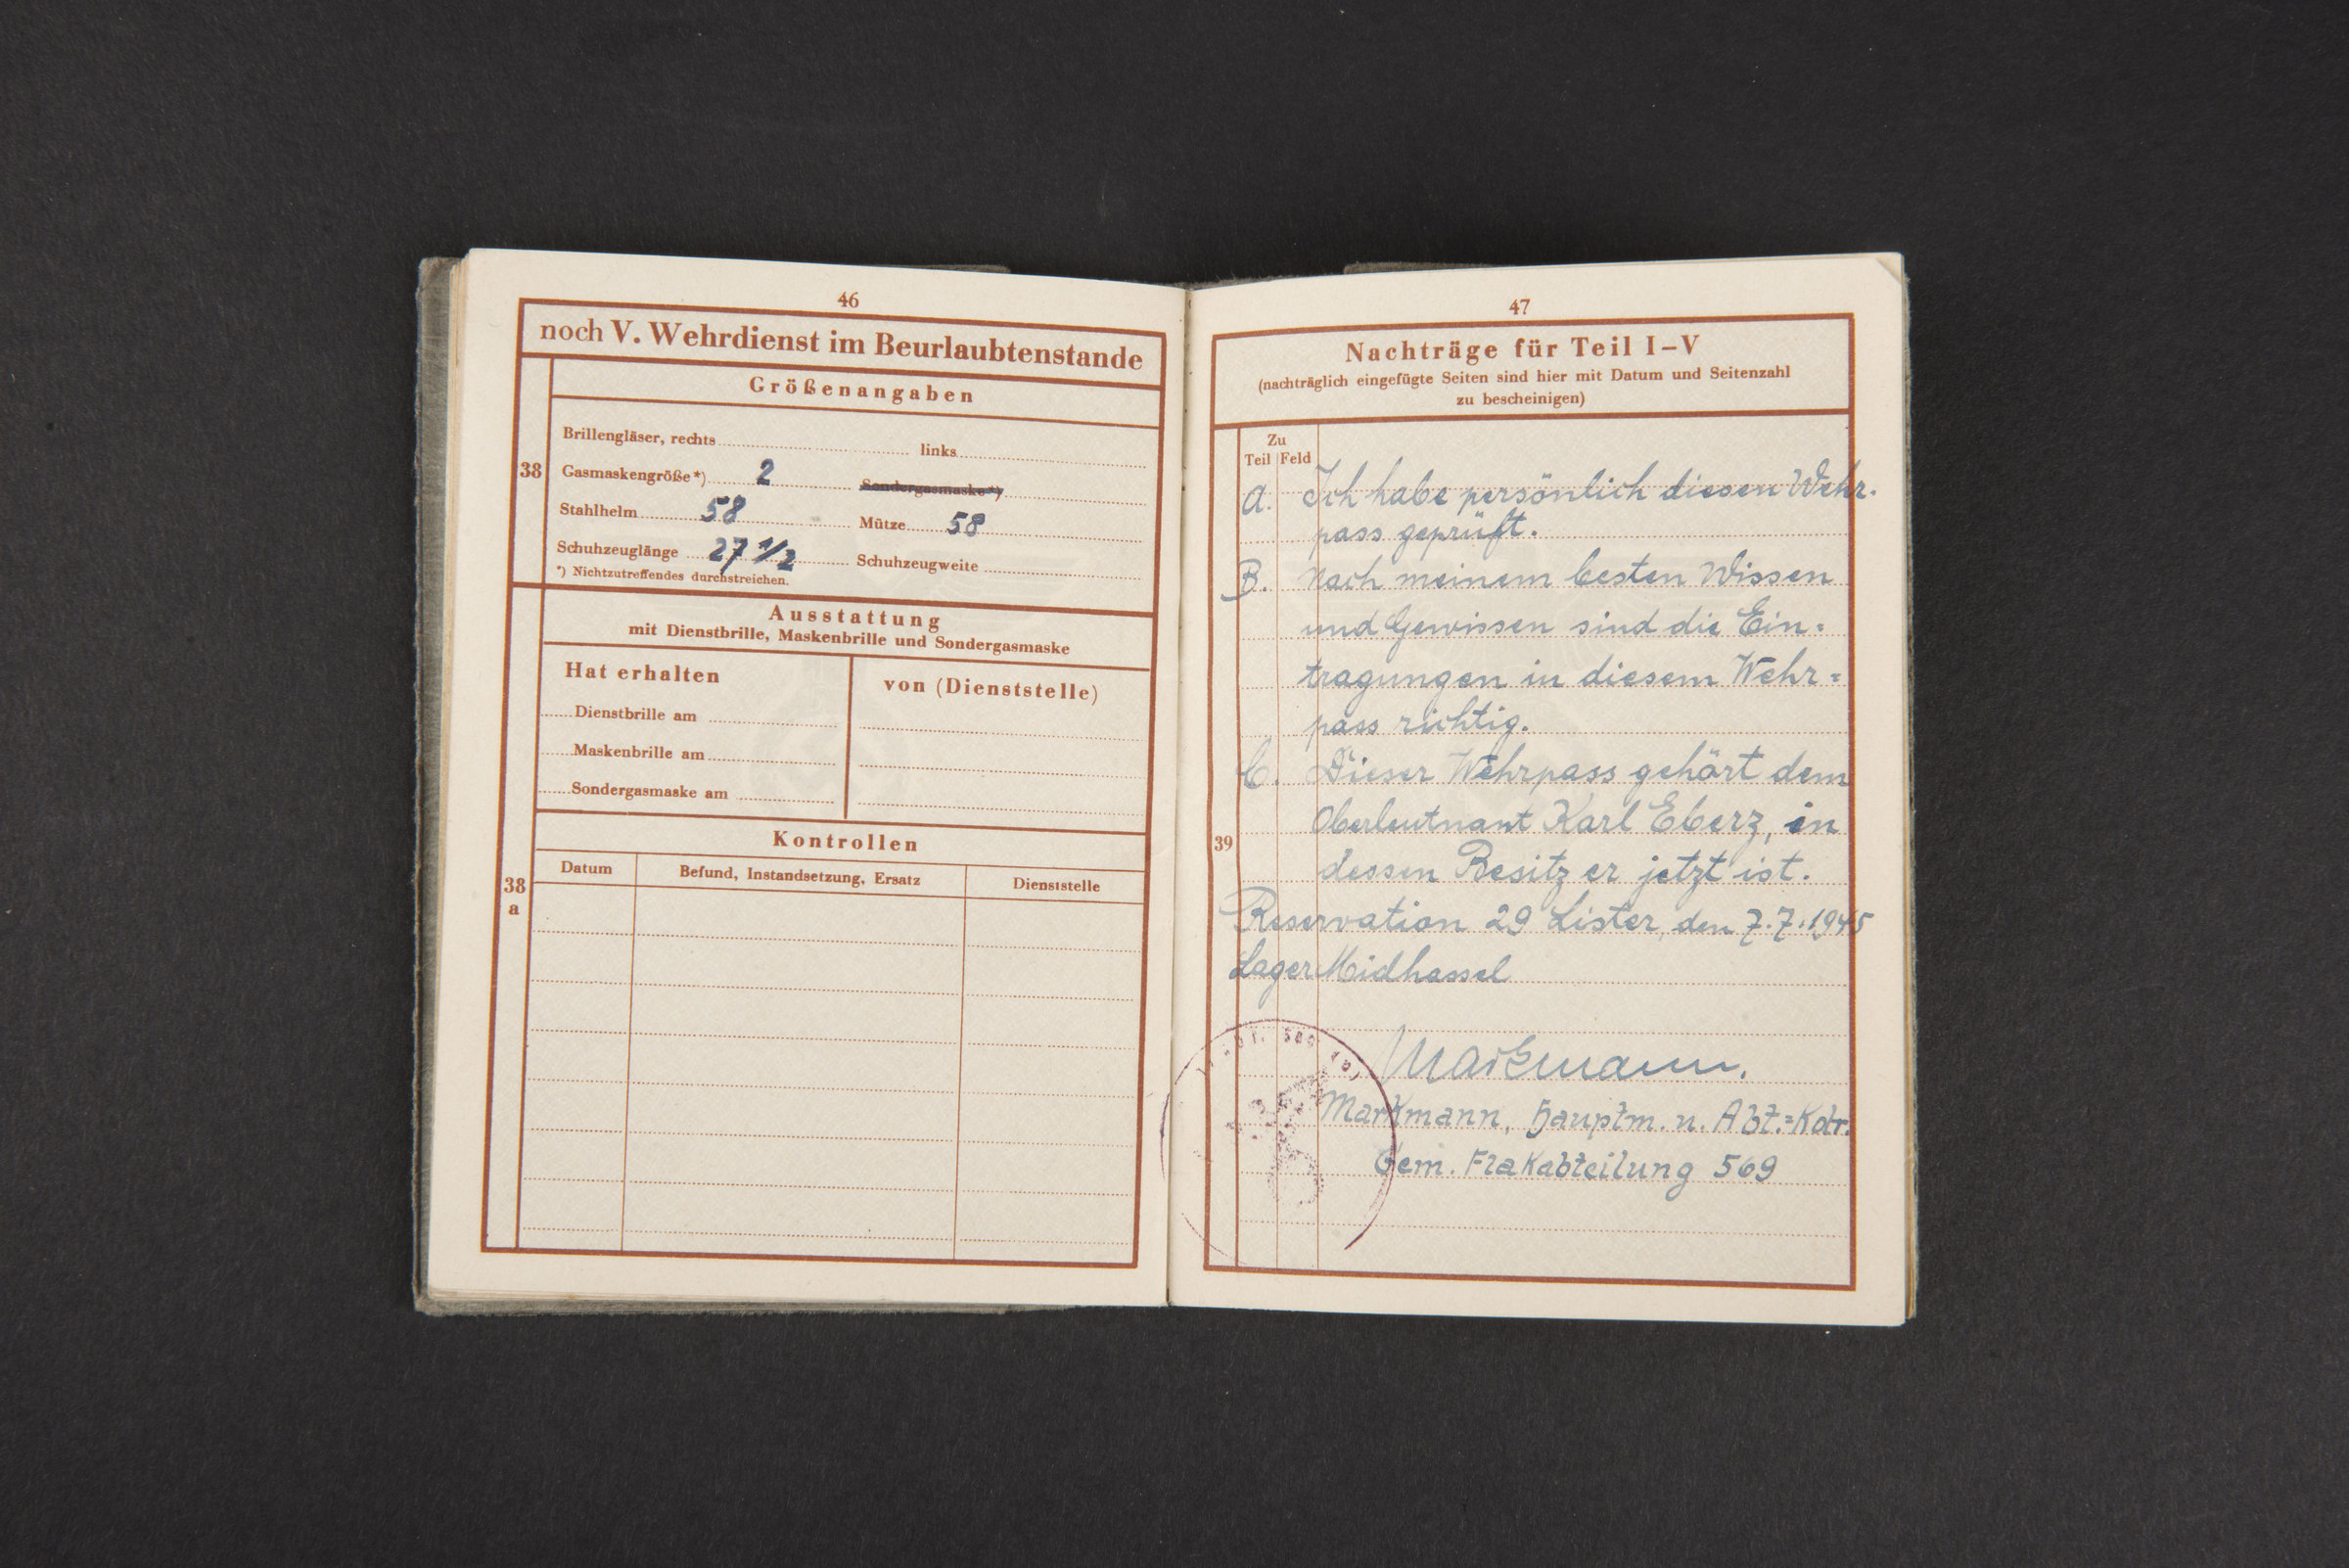 46
noch V. Wehrdienst im Beurlaubtenstande
38
Größenangaben
Brillengläser, rechts links
Gasmaskengröße*) 2 Sondergasmaske*)
Stahlhelm 58 Mütze 58
Schuhzeuglänge 27 1/2 Schuhzeugweite
*) Nichtzutreffendes durchstreichen.
38
a
Ausstattung
mit Dienstbrille, Maskenbrille und Sondergasmaske
Hat erhalten von (Dienststelle)
Dienstbrille am
Maskenbrille am
Sondergasmaske am
Kontrollen
Datum Befund, Instandsetzung, Ersatz Dienststelle
47
Nachträge für Teil I–V
(nachträglich eingefügte Seiten sind hier mit Datum und Seitenzahl
zu bescheinigen)
39
Zu
Teil Feld
a. Ich habe persönlich diesen Wehr-
pass geprüft.
B. Nach meinem besten Wissen
und Gewissen sind die Ein-
tragungen in diesem Wehr=
pass richtig.
C. Dieser Wehrpass gehört dem
Oberleutnant Karl Eberz, in
dessen Besitz er jetzt ist.
Reservation 29 Lister, den 7.7.1945
Lager Midhassel
Markmann.
Markmann, Hauptm. u. Abt.=Kdr.
Gem. Flakabteilung 569